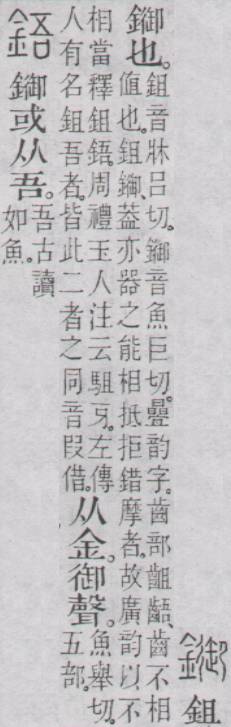 䥏鉏
䥏也。
鉏音牀呂切。䥏音魚巨切。疊韵字。齒部齟齬、齒不相
值也。鉏䥏、葢亦器之能相抵拒錯摩者。故廣韵以不
相當釋鉏鋙。周禮玉人注云駔牙。左傳
人有名鉏吾者。皆此二者之同音叚借。
从金。御聲。
魚舉切。
五部。
鋙䥏或从吾。
吾古讀
如魚。